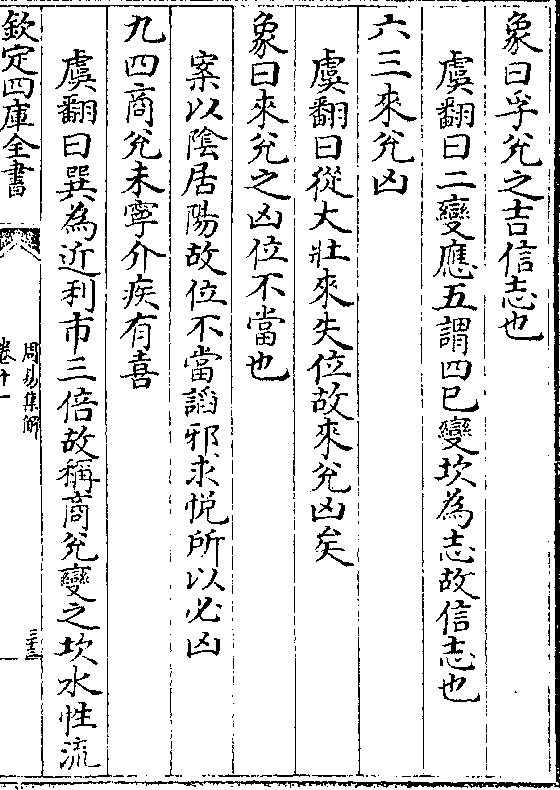 象曰孚兌之吉信志也
虞翻曰二變應五謂四已變坎為志故信志也
六三來兌凶
虞翻曰從大壯來失位故來兌凶矣
象曰來兌之凶位不當也
案以陰居陽故位不當謟邪求悦所以必凶
九四商兌未寧介疾有喜
虞翻曰巽為近利市三倍故稱商兌變之坎水性流
欽定四庫全書
周易集解
卷十一
三十三